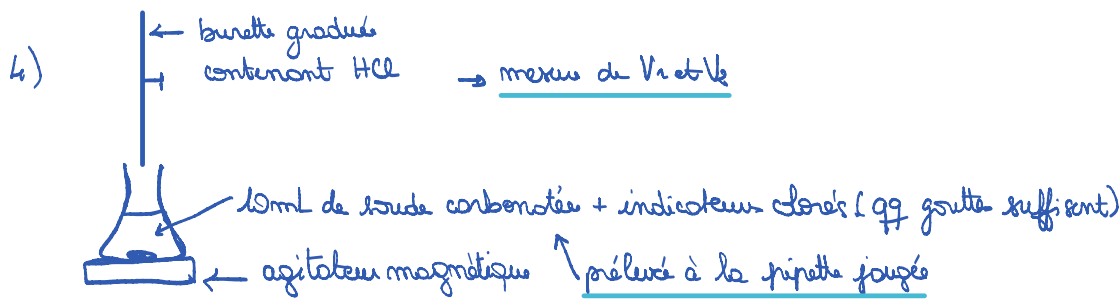 4)
← burette graduée
contenant HCl → mesure de V1 et V2
10mL de soude carbonatée + indicateurs colorés (qq gouttes suffisent)
← agitateur magnétique prélevé à la pipette jaugée